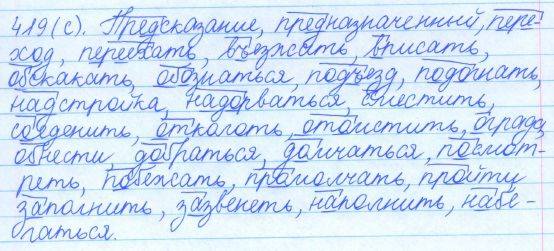 419(с). Предсказание, предназначенный, пере-
ход, переехать, въезжать, вписать,
обскакать, обознаться, подъезд, подогнать,
надстройка, надорваться, сместить,
соеденить, отколоть, отоистить, ограда,
обнести, добраться, домчаться, посмот-
реть, побежать, промолчать, пройти
заполнить, зазвенеть, наполнить, набе-
гаться.